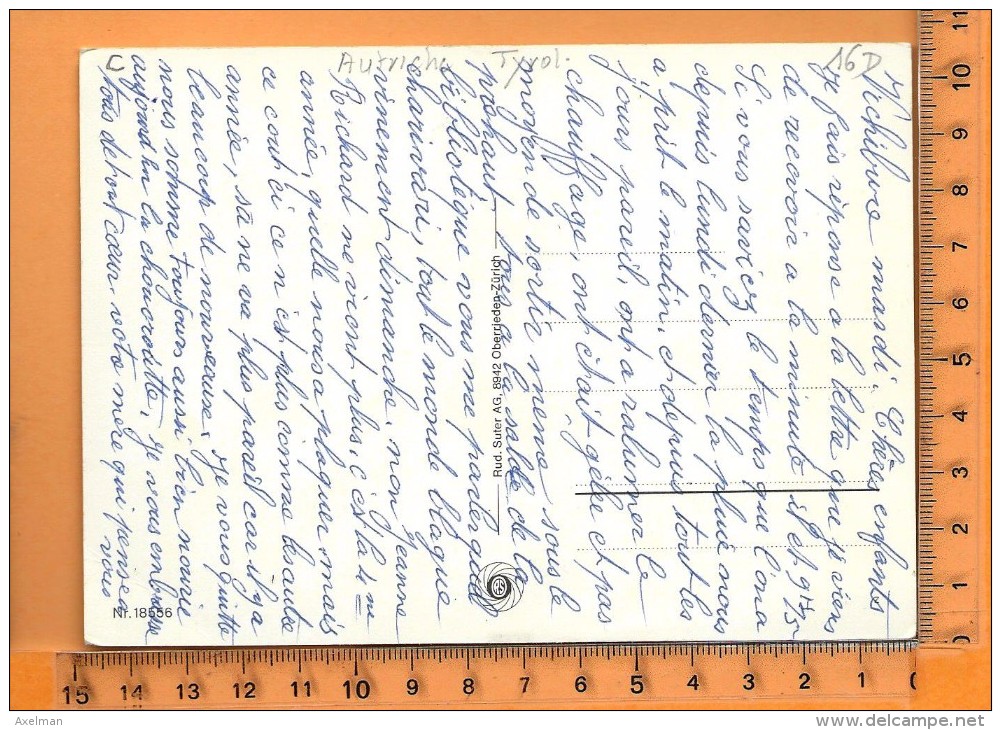 Kichibuo mardi. Chers enfants
je fais réponse a la lettre que je viens
de recevoir a la minute il et 9H¼
Si vous saviez le temps que l'on a
depuis lundi dernier la pluie nous
a prit le matin, et depuis toutes
jours pareil, ont a ralumer le
chauffage, ont était gêlé et pas
moyen de sortir meme sous le
préhaut, pour a la salle de la
bibliotèque vous me parler du
charivari, tout le monde blague
vivement dimanche, non Jeanne
Richard ne vient plus, c'est la 4me
année, quelle nous a ploquer, mais
ce cout ci ce n'est plus comme les autre
année, sa ne va plus pareil car il y a
beaucoup de nouveause, je vous quitte
nous somme toujours aussi bien nourie
aujourd'hu la choucroutte, je vous embrasse
tous de tout cœur votre mère qui pense a
vous
Autriche Tyrol.
16D
C
Rud. Suter AG, 8942 Oberrieden-Zürich
Nr. 18556
11
10
9
8
7
6
5
4
3
2
1
0
15 14 13 12 11 10 9 8 7 6 5 4 3 2 1 0
Axelman
www.delcampe.net